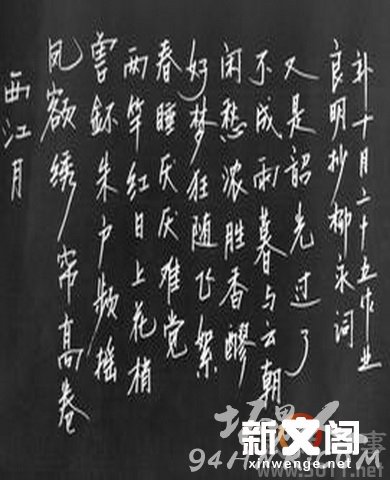 西江月
凤额绣帘高卷
兽环朱户频摇
两竿红日上花梢
春睡厌厌难觉
好梦狂随飞絮
闲愁浓胜香醪
不成雨暮与云朝
又是韶光过了
良明抄柳永词
补十月二十五作业
新文阁
xinwenge.net